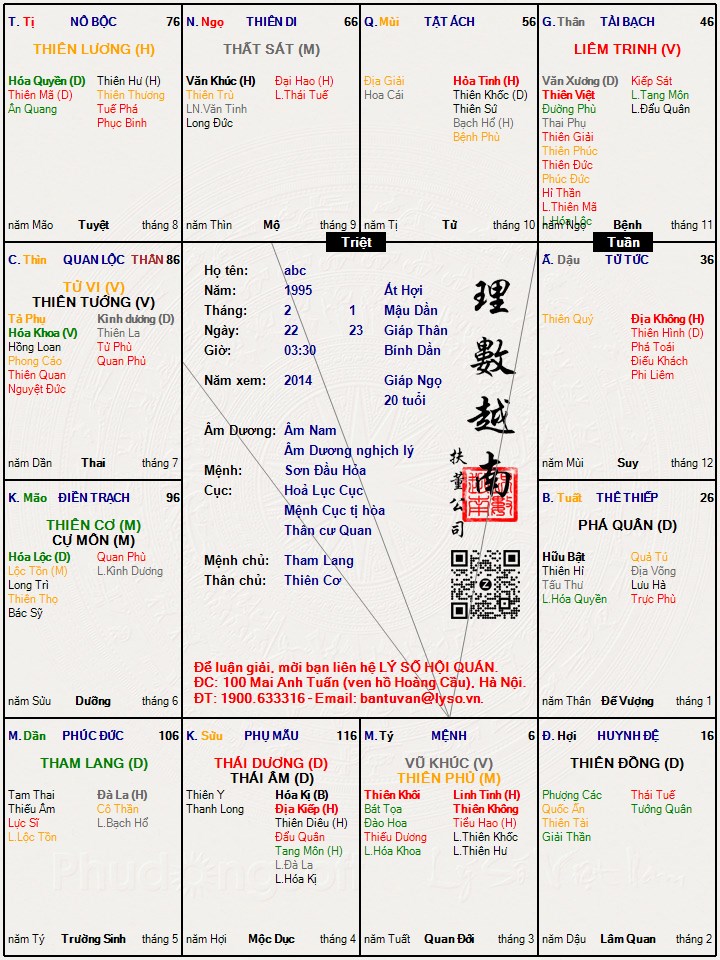 T. Tị NÔ BỘC 76
THIÊN LƯƠNG (H)
Hóa Quyền (D) Thiên Hư (H)
Thiên Mã (D) Thiên Thương
Ân Quang Tuế Phá
Phục Binh
năm Mão Tuyệt tháng 8
N. Ngọ THIÊN DI 66
THẤT SÁT (M)
Văn Khúc (H) Đại Hao (H)
Thiên Trù L.Thái Tuế
LN.Văn Tinh
Long Đức
năm Thìn Mộ tháng 9
Q. Mùi TẬT ÁCH 56
Địa Giải Hỏa Tinh (H)
Hoa Cái Thiên Khốc (D)
Thiên Sứ
Bạch Hổ (H)
Bệnh Phù
năm Tị Tử tháng 10
G. Thân TÀI BẠCH 46
LIÊM TRINH (V)
Văn Xương (D) Kiếp Sát
Thiên Việt L.Tang Môn
Đường Phù L.Đẩu Quân
Thai Phụ
Thiên Giải
Thiên Phúc
Thiên Đức
Phúc Đức
Hỉ Thần
L.Thiên Mã
L.Hóa Lộc
năm Ngọ Bệnh tháng 11
Triệt
Tuần
C. Thìn QUAN LỘC THÂN 86
TỬ VI (V)
THIÊN TƯỚNG (V)
Tả Phụ Kình dương (D)
Hóa Khoa (V) Thiên La
Hồng Loan Tử Phù
Phong Cáo Quan Phủ
Thiên Quan
Nguyệt Đức
năm Dần Thai tháng 7
Họ tên: abc
Năm: 1995 Ất Hợi
Tháng: 2 1 Mậu Dần
Ngày: 22 23 Giáp Thân
Giờ: 03:30 Bính Dần
Năm xem: 2014 Giáp Ngọ
20 tuổi
Âm Dương: Âm Nam
Âm Dương nghịch lý
Mệnh: Sơn Đầu Hỏa
Cục: Hoả Lục Cục
Mệnh Cục tị hòa
Thân cư Quan
Mệnh chủ: Tham Lang
Thân chủ: Thiên Cơ
理數越南
扶董公司
Để luận giải, mời bạn liên hệ LÝ SỐ HỘI QUÁN.
ĐC: 100 Mai Anh Tuấn (ven hồ Hoàng Cầu), Hà Nội.
ĐT: 1900.633316 - Email: bantuvan@lyso.vn.
Ấ. Dậu TỬ TỨC 36
Thiên Quý Địa Không (H)
Thiên Hình (D)
Phá Toái
Điếu Khách
Phi Liêm
năm Mùi Suy tháng 12
K. Mão ĐIỀN TRẠCH 96
THIÊN CƠ (M)
CỰ MÔN (M)
Hóa Lộc (D) Quan Phù
Lộc Tồn (M) L.Kình Dương
Long Trì
Thiên Thọ
Bác Sỹ
năm Sửu Dưỡng tháng 6
B. Tuất THÊ THIẾP 26
PHÁ QUÂN (D)
Hữu Bật Quả Tú
Thiên Hỉ Địa Võng
Tấu Thư Lưu Hà
L.Hóa Quyền Trực Phù
năm Thân Đế Vượng tháng 1
M. Dần PHÚC ĐỨC 106
THAM LANG (D)
Tam Thai Đà La (H)
Thiếu Âm Cô Thần
Lực Sĩ L.Bạch Hổ
L.Lộc Tồn
năm Tý Trường Sinh tháng 5
K. Sửu PHỤ MẪU 116
THÁI DƯƠNG (D)
THÁI ÂM (D)
Thiên Y Hóa Kị (B)
Thanh Long Địa Kiếp (H)
Thiên Diêu (H)
Đẩu Quân
Tang Môn (H)
L.Đà La
L.Hóa Kị
năm Hợi Mộc Dục tháng 4
M. Tý MỆNH 6
VŨ KHÚC (V)
THIÊN PHỦ (M)
Thiên Khôi Linh Tinh (H)
Bát Tọa Thiên Không
Đào Hoa Tiểu Hao (H)
Thiếu Dương L.Thiên Khốc
L.Hóa Khoa L.Thiên Hư
năm Tuất Quan Đới tháng 3
Đ. Hợi HUYNH ĐỆ 16
THIÊN ĐỒNG (D)
Phượng Các Thái Tuế
Quốc Ấn Tướng Quân
Thiên Tài
Giải Thần
năm Dậu Lâm Quan tháng 2